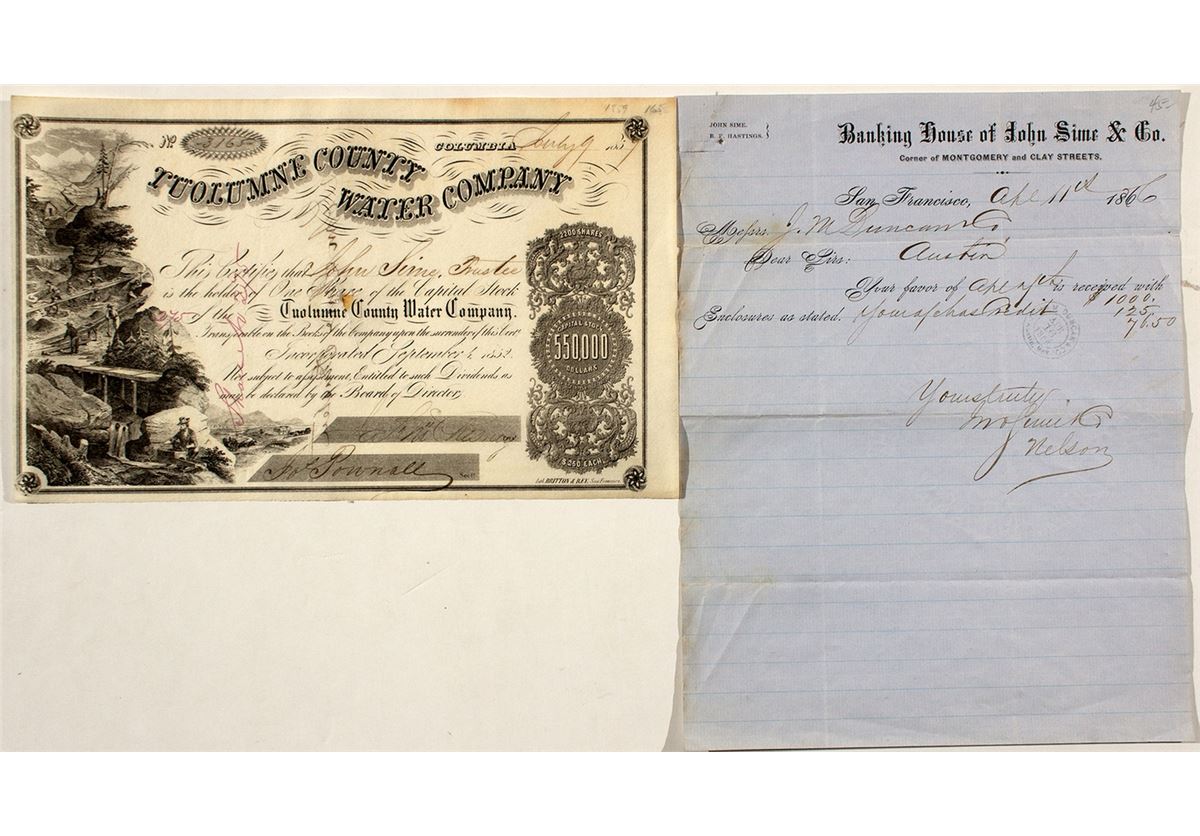 1859 165-
No 3165
COLUMBIA July 9 1859
TUOLUMNE COUNTY
WATER COMPANY
This Certifies, that John Sime, Trustee
is the holder of One Share of the Capital Stock
of the Tuolumne County Water Company.
Transferable on the Books of the Company upon the surrender of this Cert.
Incorporated September 4, 1852.
Not subject to assessment, Entitled to such Dividends as
may be declared by the Board of Directors,
Jos. Pownall Sec'y
2200 SHARES
CAPITAL STOCK
550000
DOLLARS
$250 EACH
Lith. BRITTON & REY, San Francisco.
45-
JOHN SIME.
B. F. HASTINGS.
Banking House of John Sime & Co.
Corner of MONTGOMERY and CLAY STREETS.
San Francisco, Apl 11th 1866
Messrs. J. M Duncan & Co
Dear Sirs: Austin
Your favor of Apl is received with
Enclosures as stated. Your a/c has Credit $1000.
125
76.50
Yours truly
Jno Sime & Co
Nelson